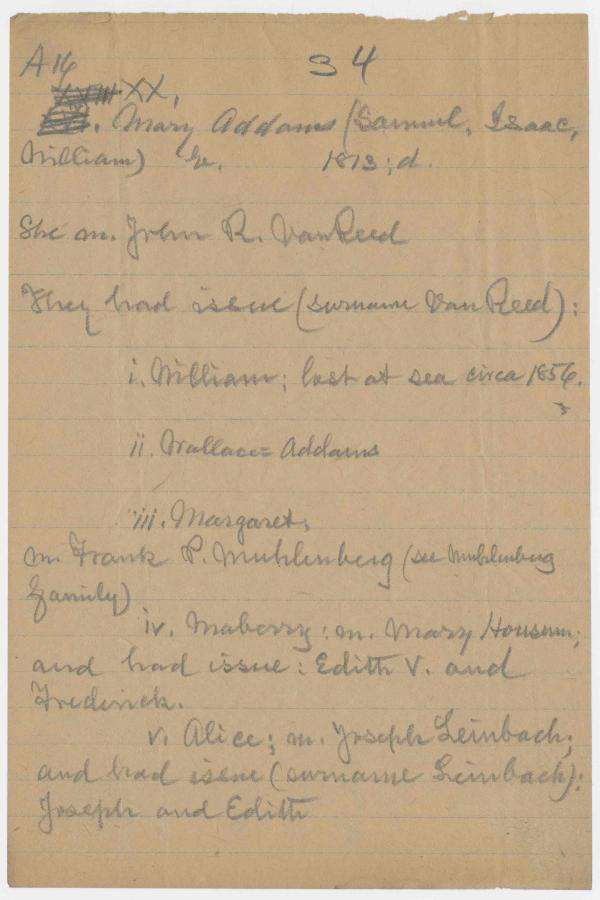 A 16
34
XVIII XX.
Mary Addams (Samuel, Isaac,
William) b. 1813; d.
She m. John R. Van Reed
They had issue (surname Van Reed):
i. William; lost at sea circa 1856.
ii. Wallace = Addams
iii. Margaret,
m. Frank P. Muhlenberg (see Muhlenberg
family)
iv. Maberry: m. Mary Housum;
and had issue: Edith V. and
Frederick.
v. Alice; m. Joseph Leinbach;
and had issue (surname Leinbach):
Joseph and Edith